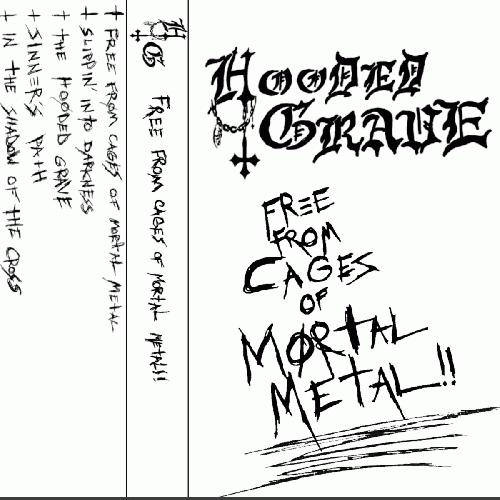 † FREE FROM CAGES OF MORTAL METAL
† SLIPPIN' INTO DARKNESS
† THE HOODED GRAVE
† SINNER'S PATH
† IN THE SHADOW OF THE CROSS
HG FREE FROM CAGES OF MORTAL METAL!!
HOODED
GRAVE
FREE
FROM
CAGES
OF
MORTAL
METAL!!